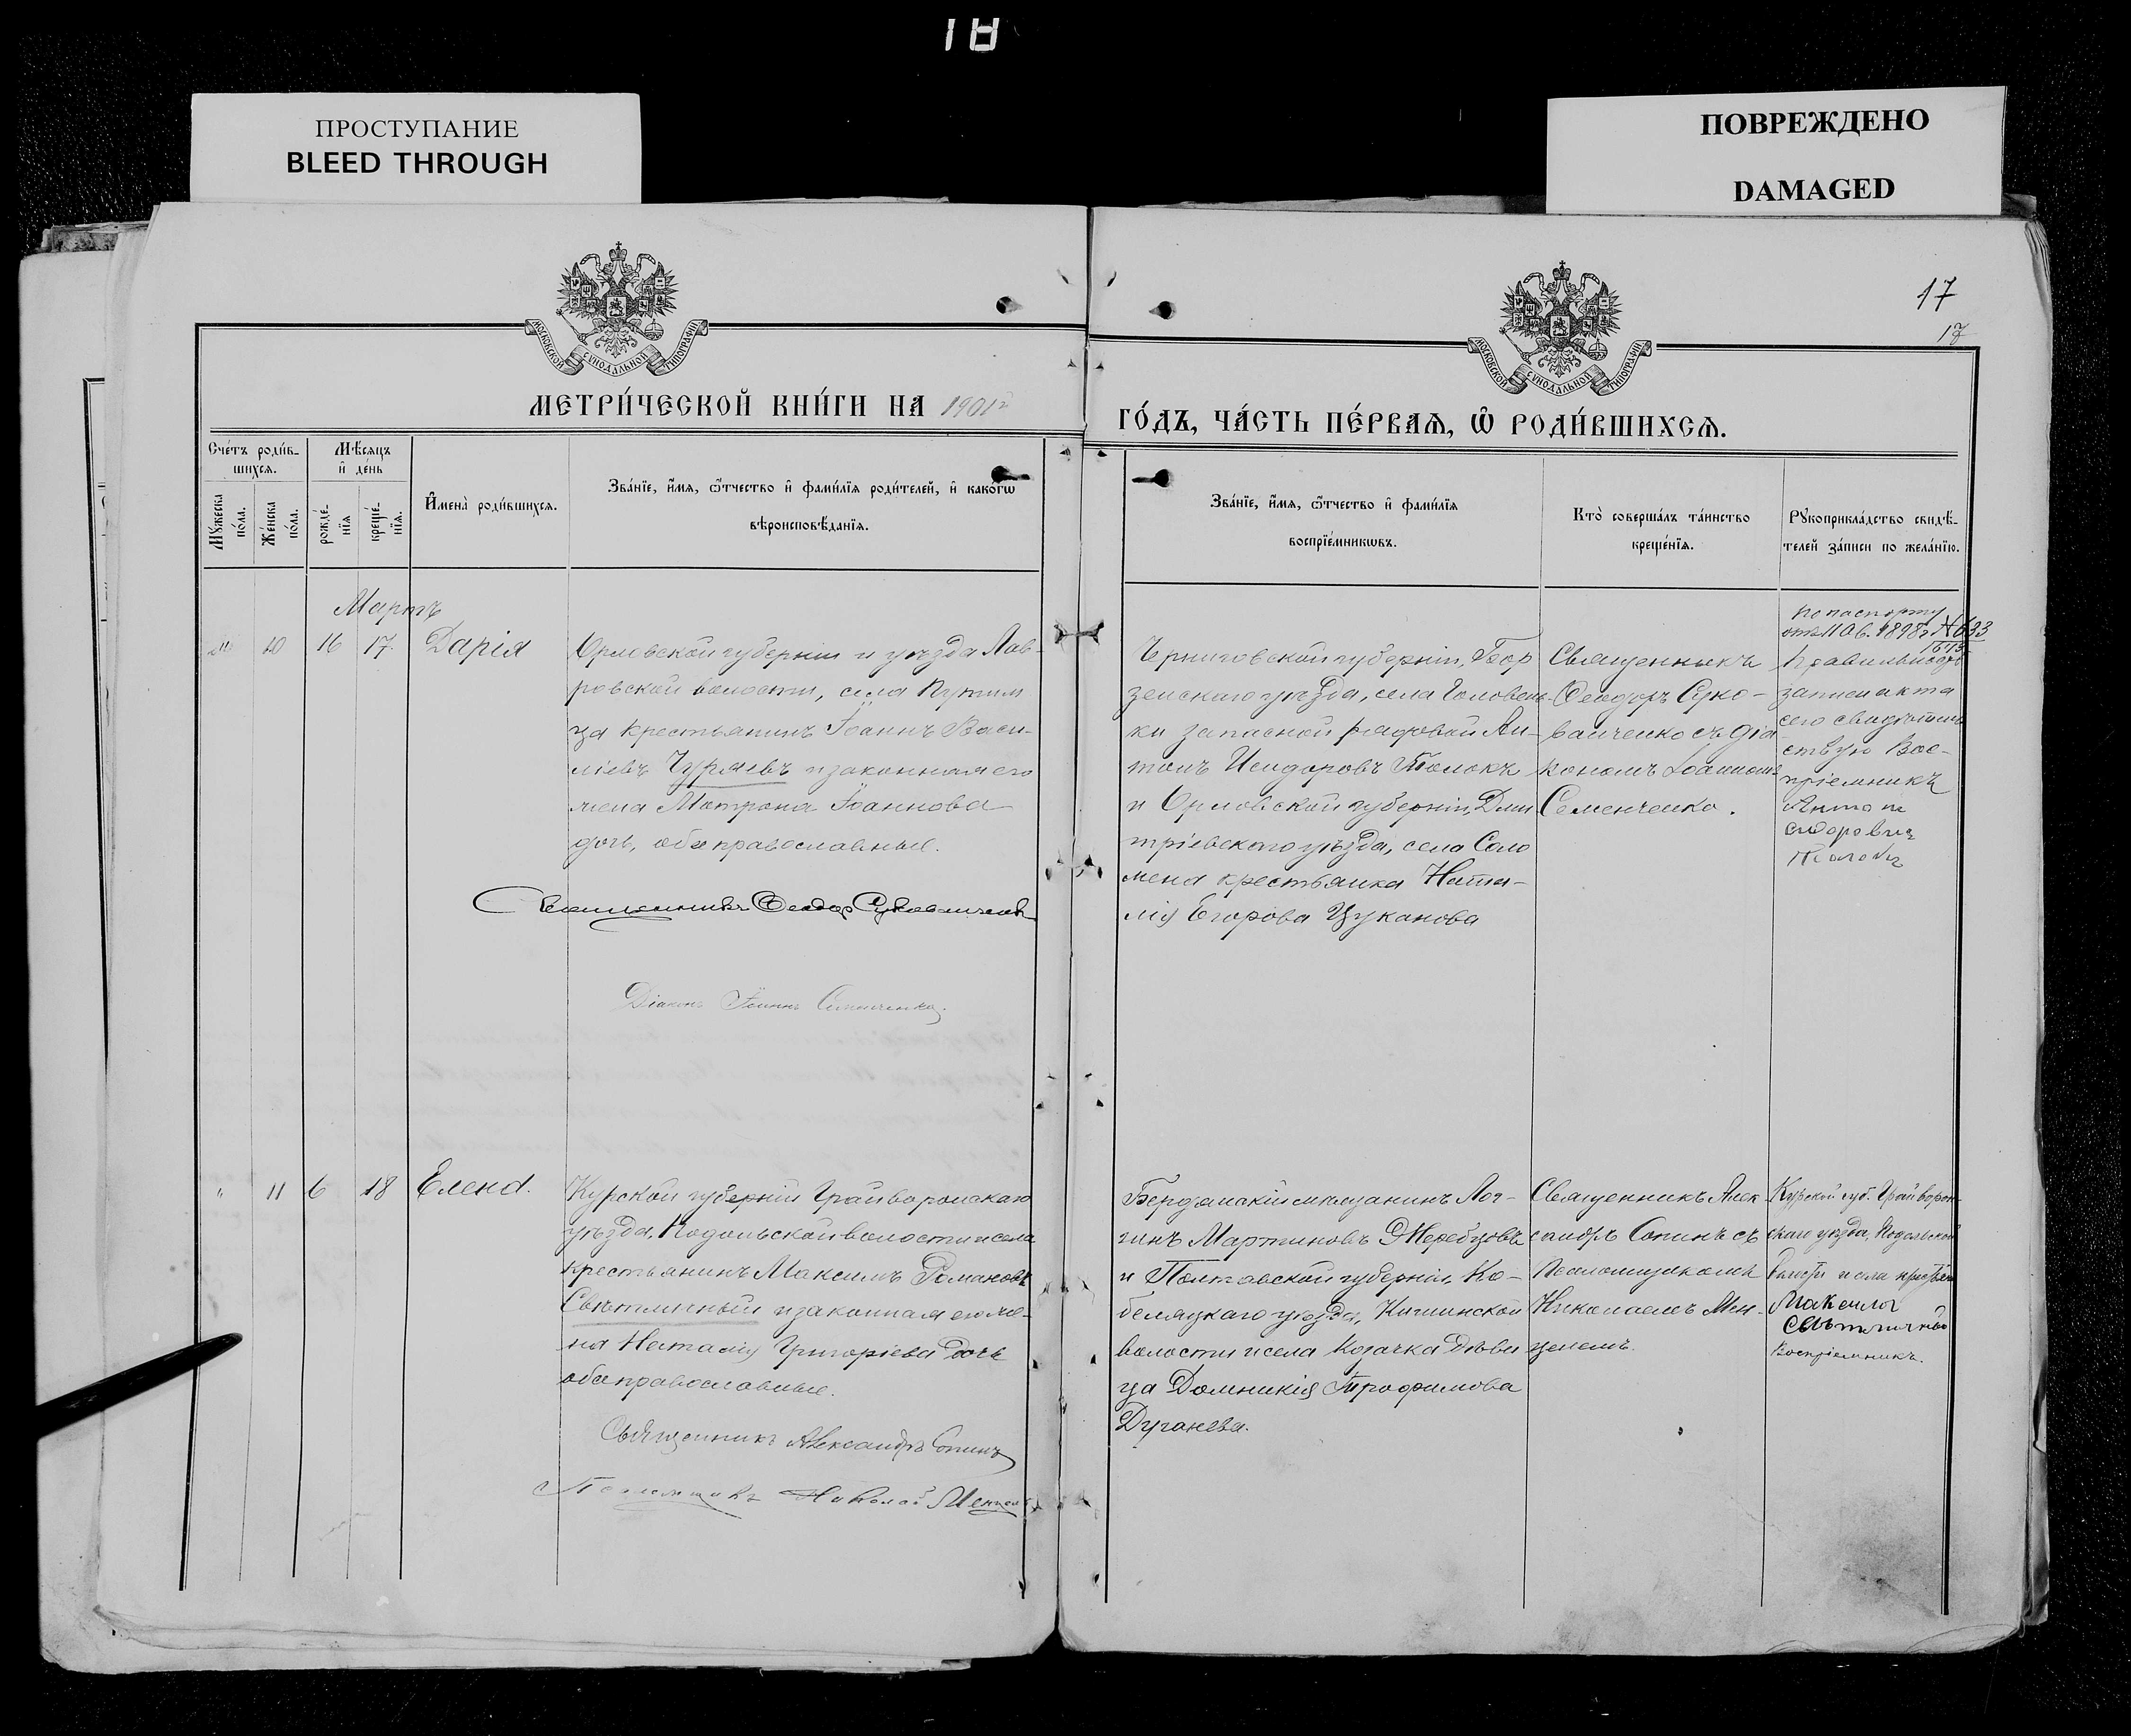 18
ПРОСТУПАНИЕ
BLEED THROUGH
ПОВРЕЖДЕНО
DAMAGED
17
17
МОСКОВСКОЙ СѴНОДАЛЬНОЙ ТИПОГРАФІИ
МОСКОВСКОЙ СѴНОДАЛЬНОЙ ТИПОГРАФІИ
МЕТРИ́ЧЕСКОЙ КНИ́ГИ НА 1901й
ГО́ДЪ, ЧА́СТЬ ПЕ́РВАѦ, Ѡ҆ РОДИ́ВШИХСѦ.
Сче́тъ роди́в-
шихсѧ.
Мѣ́сѧцъ
и҆ де́нь
Мꙋ́жеска
по́ла.
Же́нска
по́ла.
рожде́-
нїѧ
креще́-
нїѧ.
И҆мена̀ роди́вшихсѧ.
Зва́нїе, и҆́мѧ, ѻ҆́тчество и҆ фами́лїѧ роди́телей, и҆ како́гѡ
вѣроисповѣ́данїѧ.
Зва́нїе, и҆́мѧ, ѻ҆́тчество и҆ фами́лїѧ
воспрїе́мникѡвъ.
Кто̀ соверша́лъ та́инство
креще́нїѧ.
Рꙋкоприкла́дство свидѣ́-
телей за́писи по жела́нїю.
Мартъ
" 10 16 17 Дарія
Орловской губерніи и уѣзда Лав-
ровской волости, села Путим
ца крестьянинъ Іоаннъ Васи-
ліевъ Чуряевъ и законная его
жена Матрона Іоаннова
дочь, оба православные.
Священникъ Ѳеодор Суковаченко
Діаконъ Іоаннъ Семенченко.
Черниговской губерніи, Бор
зенскаго уѣзда, села Головень-
ки запасной рядовой Ан-
тонъ Исидоровъ Толокъ
и Орловской губерніи, Дми
тріевскаго уѣзда, села Соло
мена крестьянка Ната-
лія Егорова Цуканова
Священникъ
Ѳеодоръ Суко-
ваченко съ діа
кономъ Іоанномъ
Семенченко.
по паспорту
отъ 11 Ав. 1898 г №633
записи акта
сего свидѣтель
ствую Вос-
пріемникъ
Антон
сидорович
" 11 6 18 Елена.
Курской губерніи Грайворонскаго
уѣзда, Подольской волости и села
крестьянинъ Максимъ Романовъ
Свѣтличный и законная его же-
на Наталія Григоріева дочь
оба православные.
Священникъ Александръ Сопинъ
Псаломщикъ Николай Менцель
Бердянскій мѣщанинъ Лог-
гинъ Мартиновъ Жеребцовъ
и Полтавской губерніи, Ко-
беляцкаго уѣзда, Кишинской
волости и села Козачка Дѣви
ца Домникія Трофимова
Священникъ Алек
сандръ Сопинъ съ
Псаломщикомъ
Николаемъ Мен-
целемъ.
Курской губ. Грайворон
скаго уѣзда, Подольской
волости и села крестьян
Максим
Свѣтличный
Воспріемникъ.